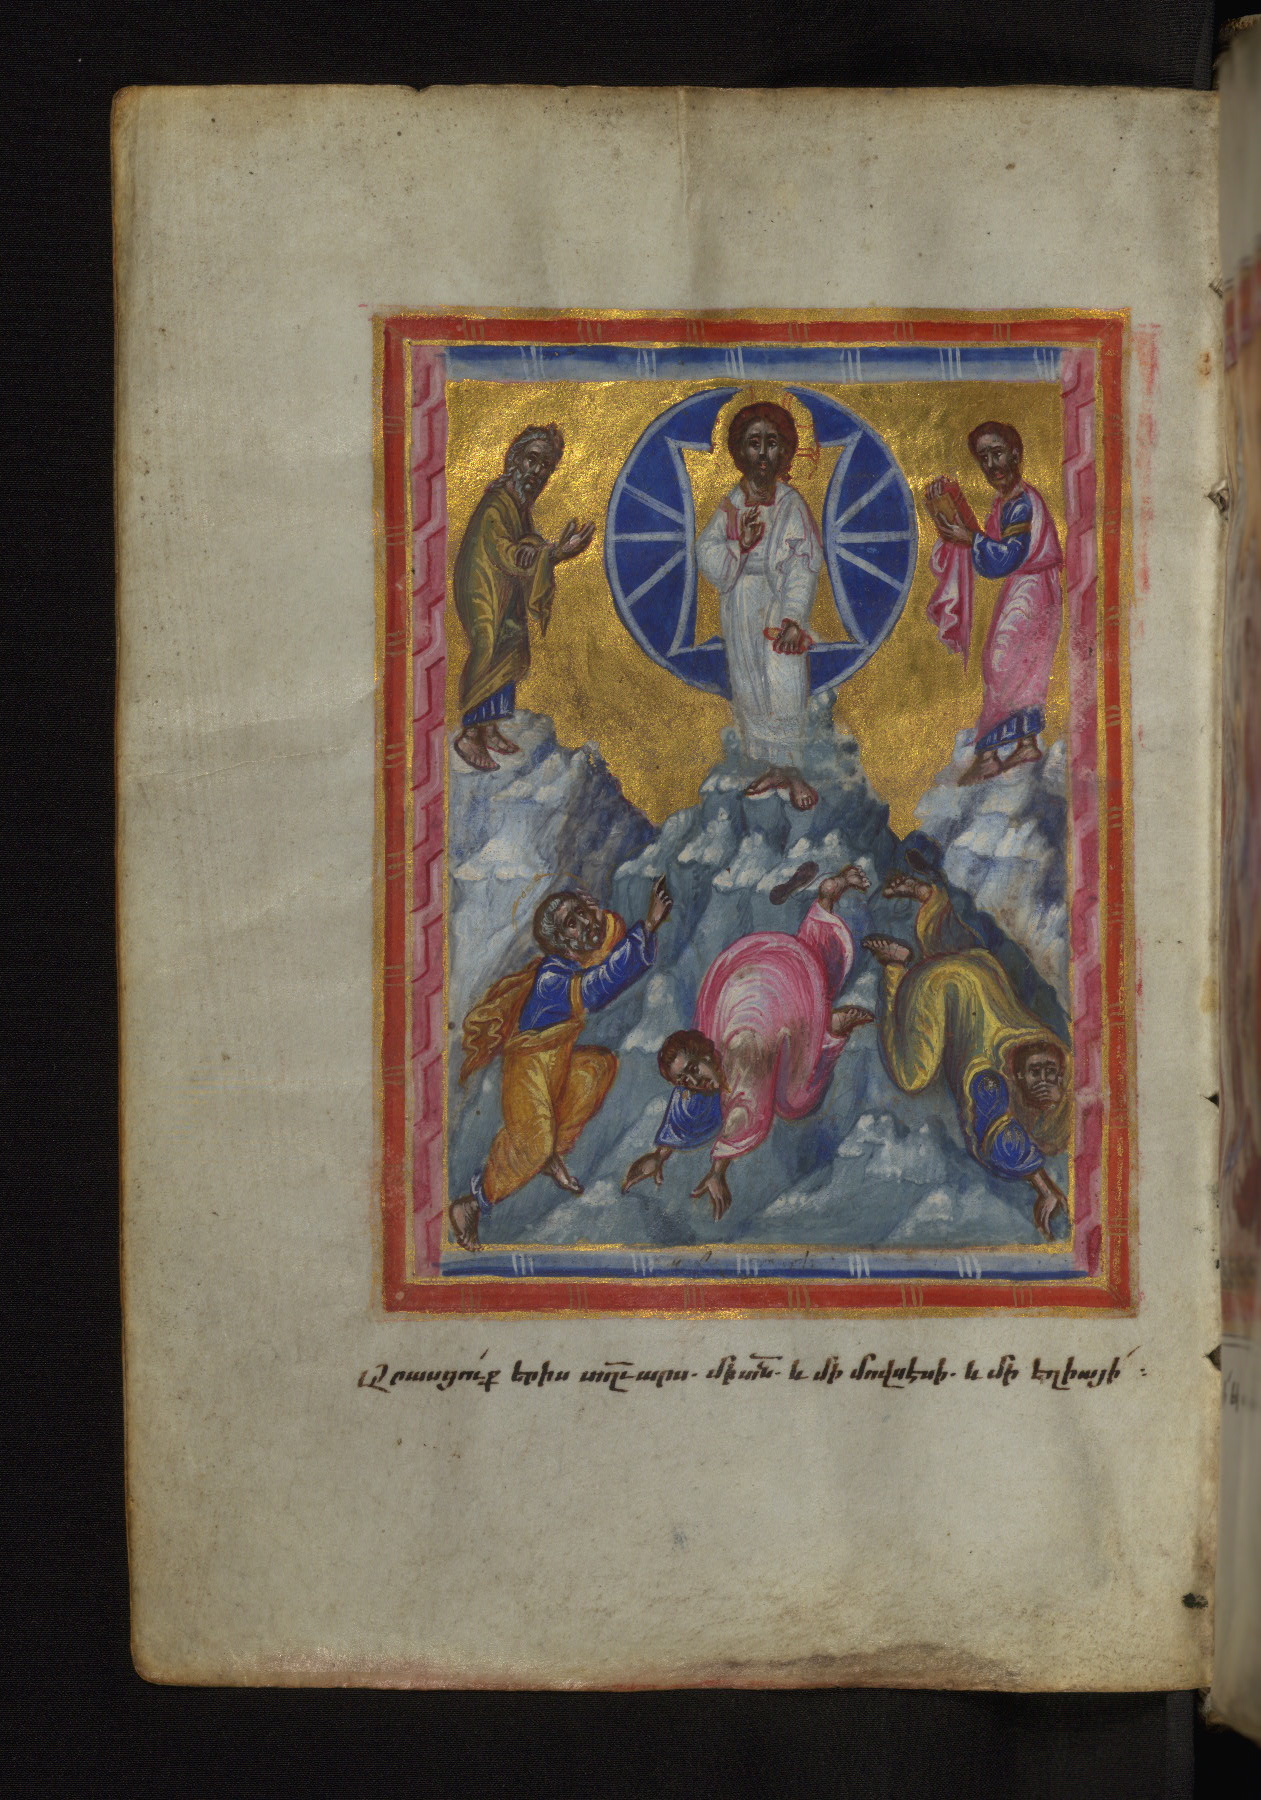 Արասցուք երիս տաղաւարս. մի տն. և մի մովսէսի. և մի եղիայի :